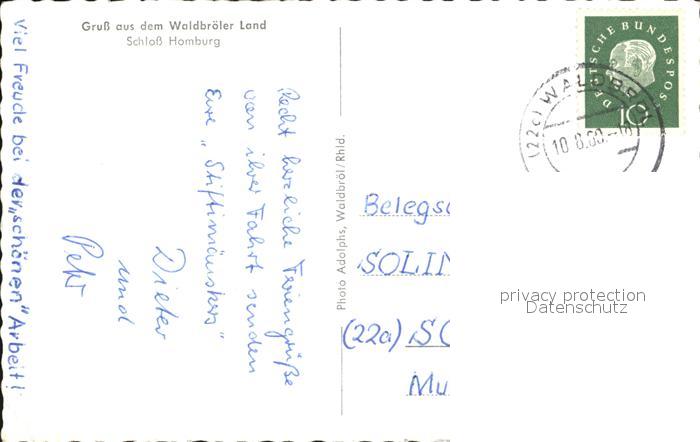 Gruß aus dem Waldbröler Land
Schloß Homburg
Recht herzliche Feriengrüße
von ihrer Fahrt senden
Eure „Stiftimäuskes"
Dieter
und
Petr
Viel Freude bei der „schönen" Arbeit!
Photo Adolphs, Waldbröl/Rhld.
DEUTSCHE BUNDESPOS
10
(22c) WALDBRÖL
10.8.60.-18
Belegsc
SOLIN
(22a) SO
Mu
privacy protection
Datenschutz